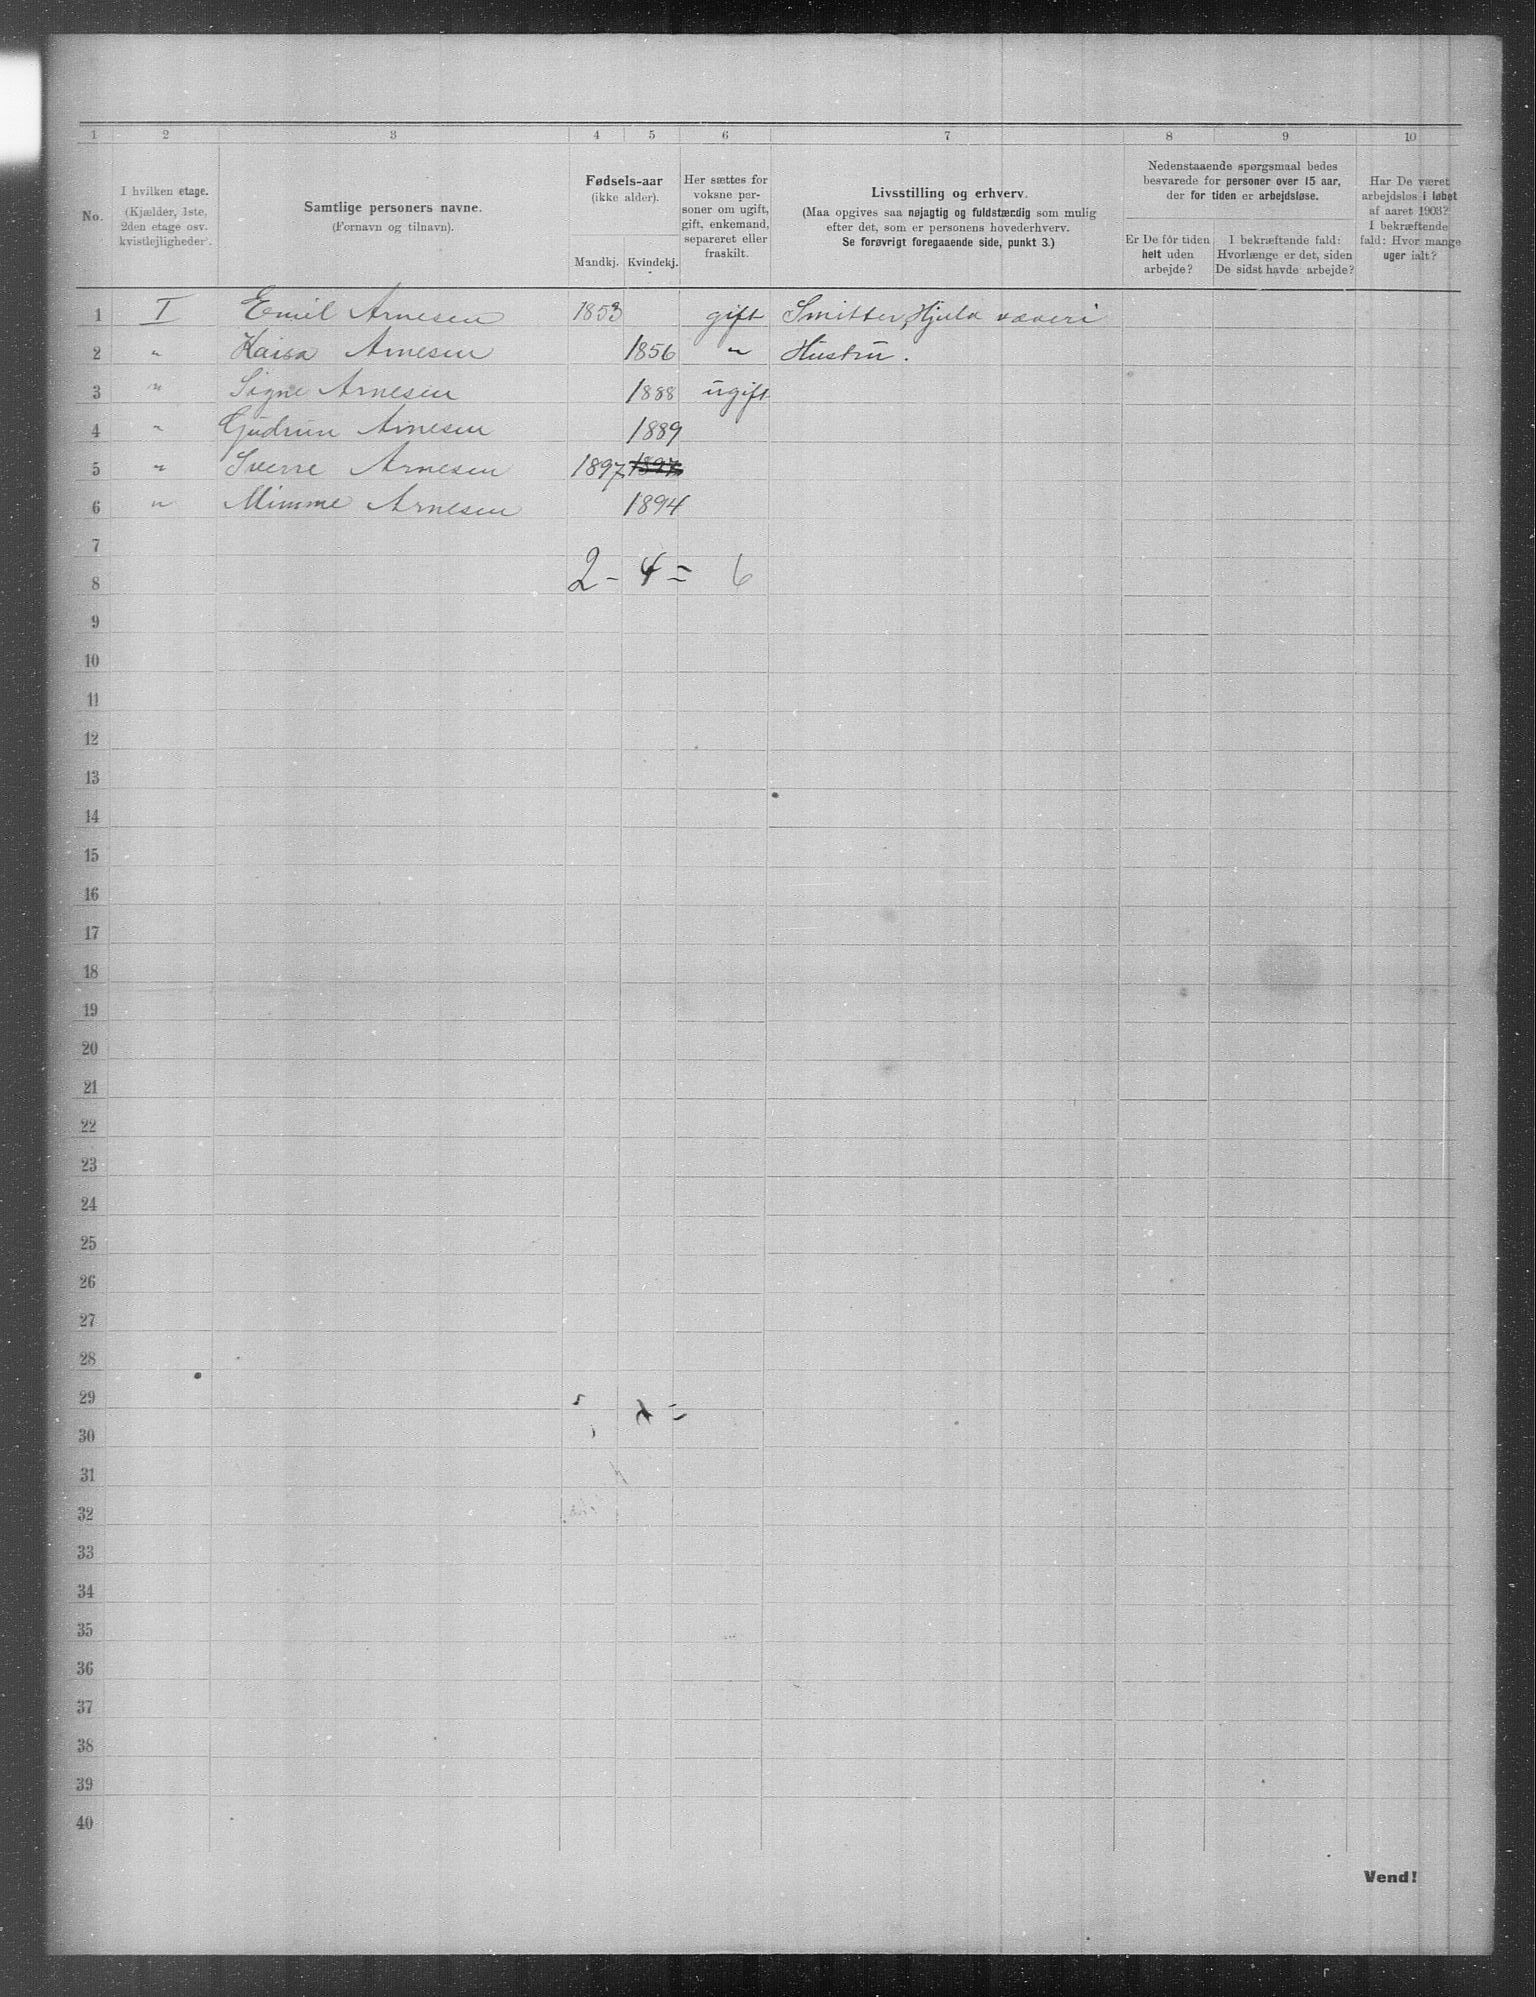 1 2 3 4 5 6 7 8 9 10
No.
I hvilken etage.
(Kjælder, 1ste,
2den etage osv.
kvistlejligheder).
Samtlige personers navne.
(Fornavn og tilnavn).
Fødsels-aar
(ikke alder).
Mandkj. Kvindekj.
Her sættes for
voksne per-
soner om ugift,
gift, enkemand,
separeret eller
fraskilt.
Livsstilling og erhverv.
(Maa opgives saa nøjagtig og fuldstændig som mulig
efter det, som er personens hovederhverv.
Se forøvrigt foregaaende side, punkt 3.)
Nedenstaaende spørgsmaal bedes
besvarede for personer over 15 aar,
der for tiden er arbejdsløse.
Er De for tiden
helt uden
arbejde?
I bekræftende fald:
Hvorlænge er det, siden
De sidst havde arbejde?
Har De været
arbejdsløs i løbet
af aaret 1903?
I bekræftende
fald: Hvor mange
uger ialt?
1 I Emil Arnesen 1853 gift Smitter, Hjula væveri
2 " Kaisa Arnesen 1856 " Hustru.
3 " Signe Arnesen 1888 ugift
4 " Gudrun Arnesen 1889
5 " Sverre Arnesen 1897 1897
6 " Mimme Arnesen 1894
7
8 2 - 4 = 6
9
10
11
12
13
14
15
16
17
18
19
20
21
22
23
24
25
26
27
28
29
30
31
32
33
34
35
36
37
38
39
40
Vend!